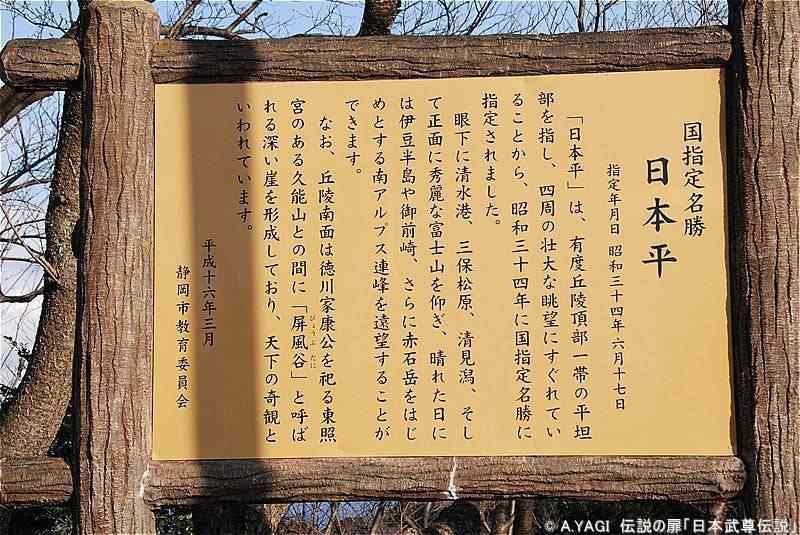 国指定名勝
日本平
指定年月日 昭和三十四年六月十七日
「日本平」は、有度丘陵頂部一帯の平坦
部を指し、四周の壮大な眺望にすぐれてい
ることから、昭和三十四年に国指定名勝に
指定されました。
眼下に清水港、三保松原、清見潟、そし
て正面に秀麗な富士山を仰ぎ、晴れた日に
は伊豆半島や御前崎、さらに赤石岳をはじ
めとする南アルプス連峰を遠望することが
できます。
なお、丘陵南面は徳川家康公を祀る東照
宮のある久能山との間に「屏風谷」と呼ば
びょうぶだに
れる深い崖を形成しており、天下の奇観と
いわれています。
平成十六年三月
静岡市教育委員会
© A.YAGI 伝説の扉「日本武尊伝説」